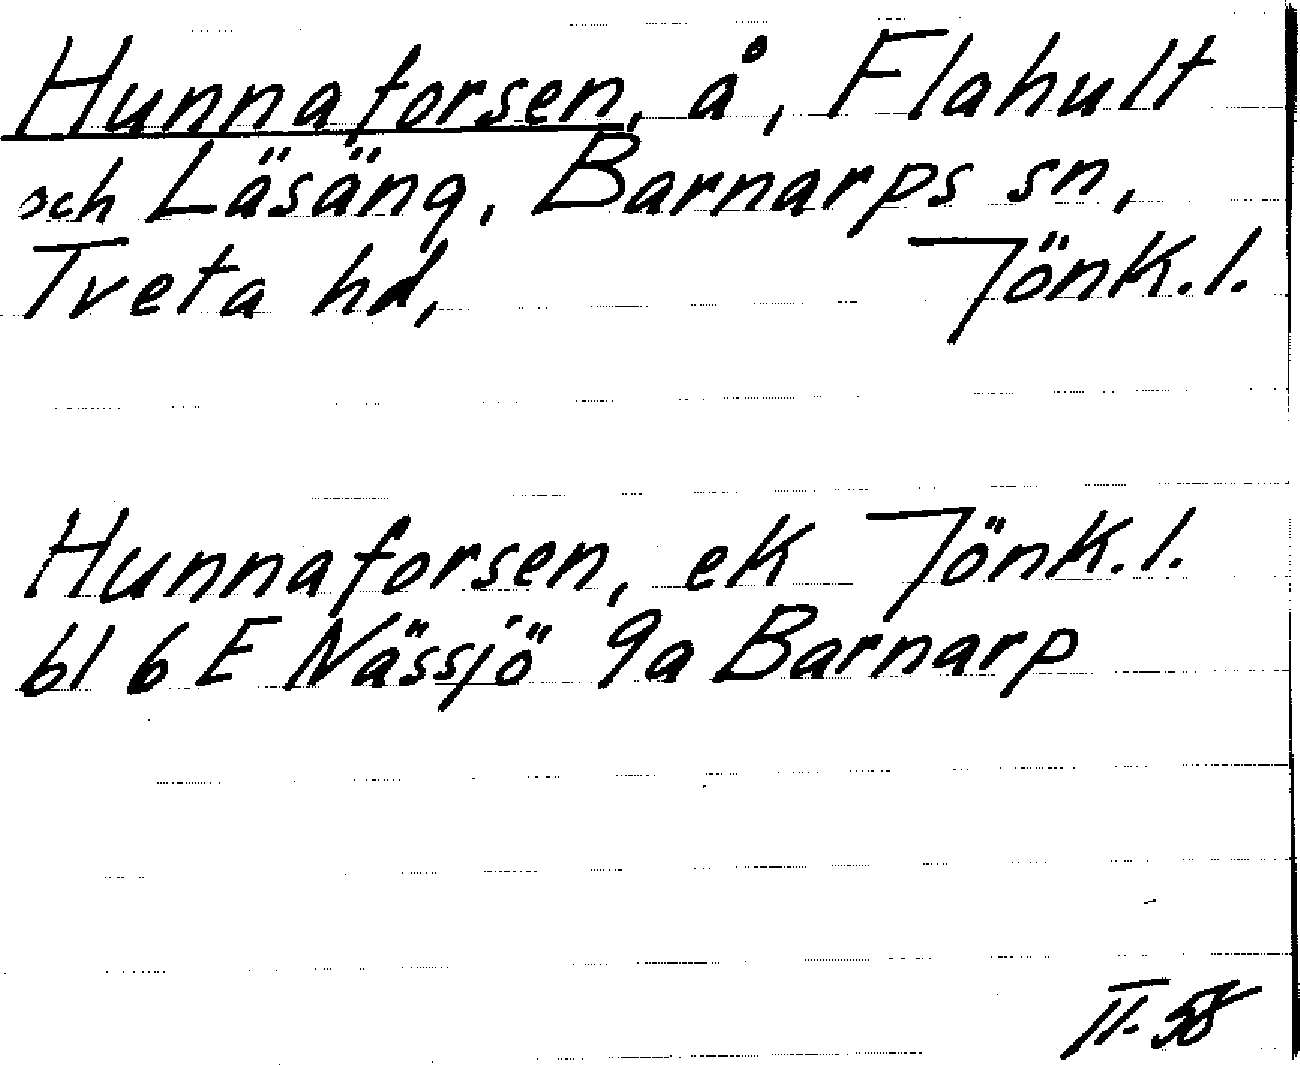 Hunnaforsen, å, Flahult
och Läsäng, Barnarps sn,
Tveta hd, Jönk.l.
Hunnaforsen, ek Jönk.l.
bl 6 E Nässjö 9a Barnarp
II-58